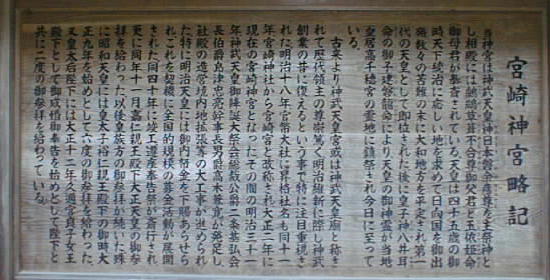 宮崎神宮略記
当神宮は神武天皇神日本磐余彦尊を主祭神と
し相殿には鵜鶿草葺不合尊御父君と玉依姫命
御母君が奉斎されている天皇は四十五歳の御
時天下の統治に応しい地を求めて日向国を御出
発数々の苦難の末に大和地方を平定され第一
代の天皇として即位された後に皇子神八井耳
命の御子建磐龍命により天皇の御神霊が当地
皇居高千穂宮の霊地に鎮祭され今日に至って
いる。
古来より神武天皇宮或は神武天皇廟と称さ
れて歴代領主の尊崇篤く明治維新に際し神武
創業の昔に復えるという事で特に注目重視さ
れた明治十八年官幣大社に昇格社名も同十一
年宮崎神社から宮崎宮と改称され大正二年に
現在の宮崎神宮となったその間の明治三十一
年神武天皇御降誕大祭会総裁公爵二条基弘会
長伯爵島津忠亮幹事長男爵高木兼寛が発足し
社殿の造営境内地拡張等の大工事が進められ
た特に明治天皇には御内帑金を下賜あらせら
れこれを契機に全国的規模の募金活動が展開
された同四十年に竣工遷座奉告祭が斎行され
更に同年十一月嘉仁親王殿下大正天皇の御参
拝を給わった以後皇族方の御参拝が続いた殊
に昭和天皇には皇太子裕仁親王殿下の御時大
正九年を始めとして六度の御参拝を給わった、
又皇太后陛下には大正十二年久邇宮良子女王
殿下として御成婚御奉告を始めとして陛下と
共に二度の御参拝を給わっている。